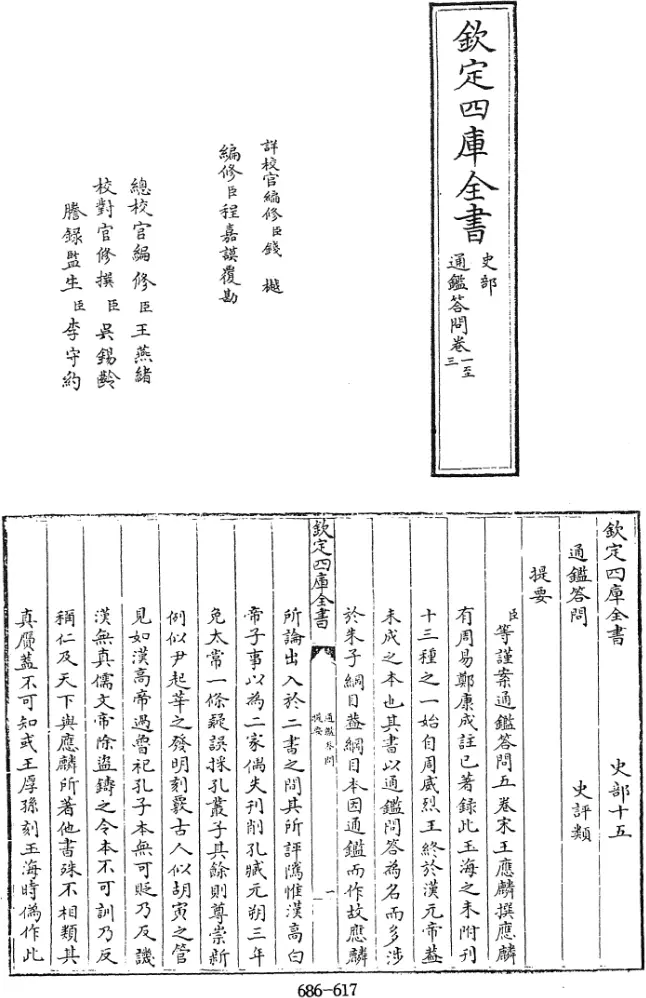 欽定四庫全書
史部
通鑑答問卷一至三
詳校官編修臣錢樾
編修臣程嘉謨覆勘
總校官編修臣王燕緒
校對官修撰臣吳錫齡
謄錄監生臣李守約
欽定四庫全書 史部十五
通鑑答問 史評類
提要
臣等謹案通鑑答問五卷宋王應麟撰應麟
有周易鄭康成註已著録此玉海之末附刊
十三種之一始自周威烈王終於漢元帝蓋
未成之本也其書以通鑑問答為名而多涉
於朱子綱目蓋綱目本因通鑑而作故應麟
欽定四庫全書
通鑑答問
提要
一
所論出入於二書之間其所評隲惟漢高白
帝子事以為二家偶失刊削孔臧元朔三年
免太常一條疑誤採孔叢子其餘則尊崇新
例似尹起莘之發明刻覈古人似胡寅之管
見如漢高帝過魯祀孔子本無可貶乃反譏
漢無真儒文帝除盜鑄之令本不可訓乃反
稱仁及天下與應麟所著他書殊不相類其
真贋蓋不可知或王厚孫刻玉海時偽作此
686-617